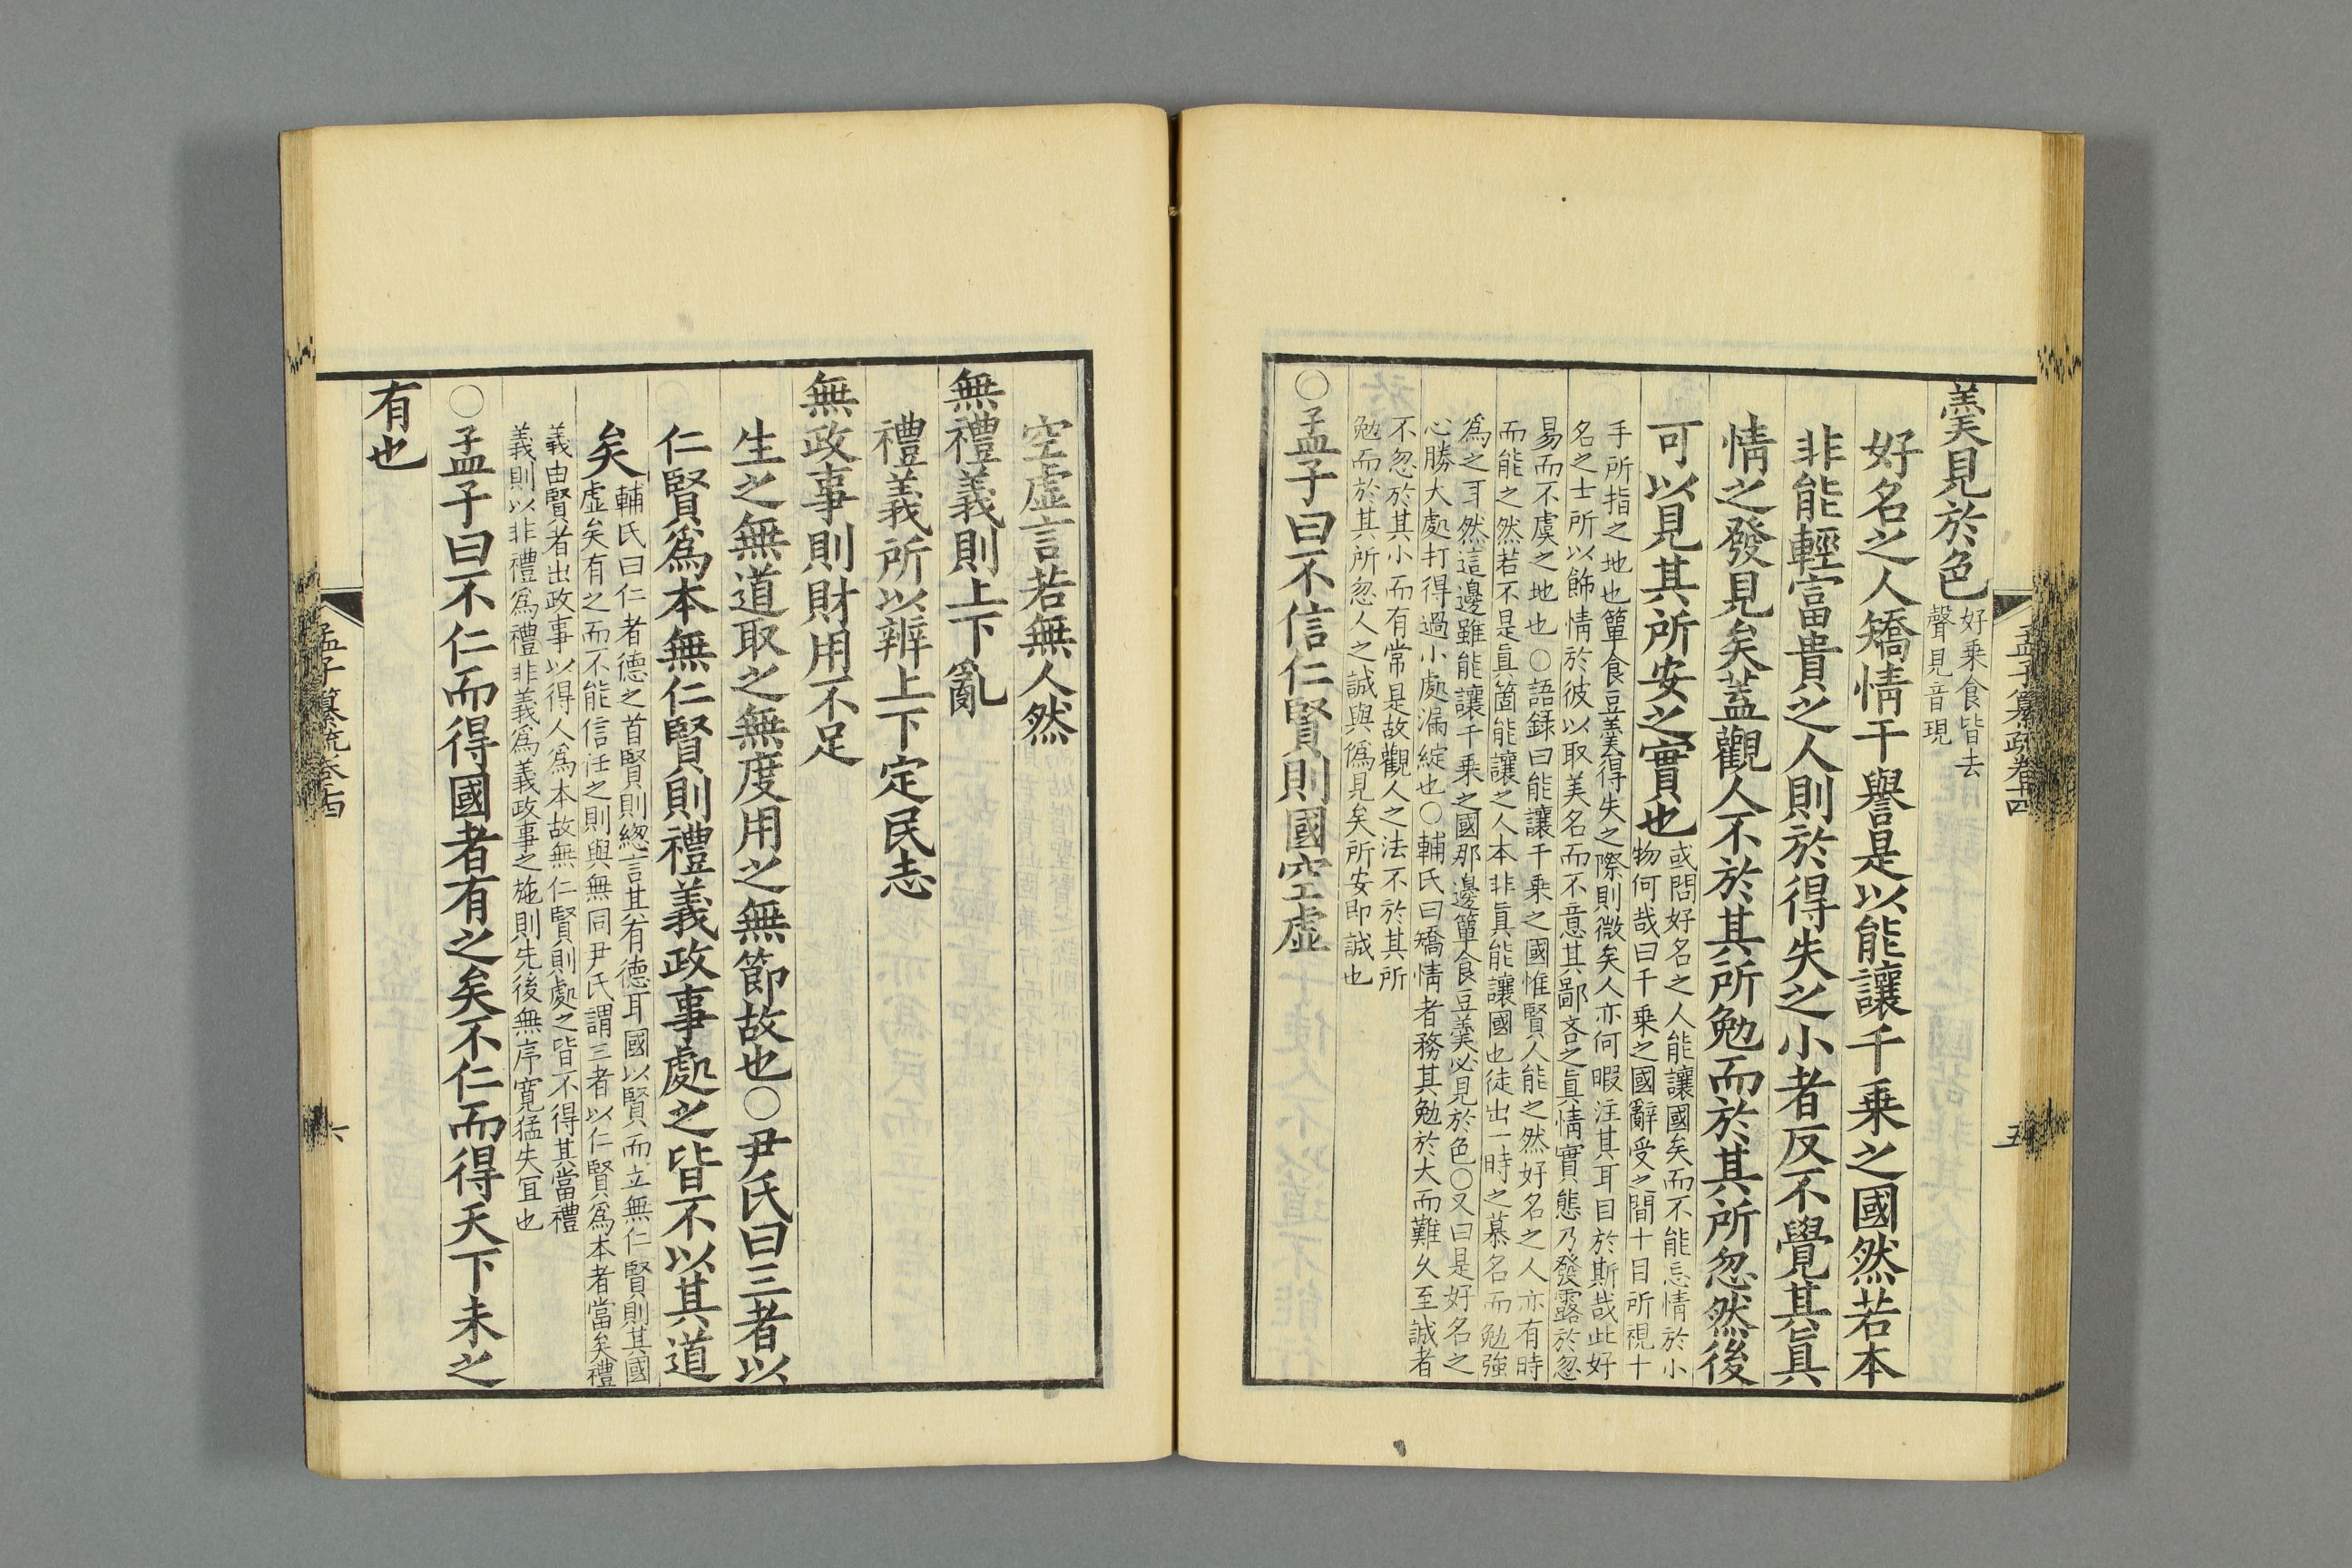 孟子纂疏卷十四
五
羮見於色
好乗食皆去
聲見音現
好名之人矯情干譽是以能讓千乗之國然若本
非能輕富貴之人則於得失之小者反不覺其眞
情之發見矣蓋觀人不於其所勉而於其所忽然後
可以見其所安之實也
或問好名之人能讓國矣而不能忘情於小
物何哉曰千乗之國辭受之間十目所視十
手所指之地也簞食豆羮得失之際則微矣人亦何暇注其耳目於斯哉此好
名之士所以飾情於彼以取美名而不意其鄙吝之眞情實態乃發露於忽
易而不虞之地也○語録曰能讓千乗之國惟賢人能之然好名之人亦有時
而能之然若不是眞箇能讓之人本非眞能讓國也徒出一時之慕名而勉強
爲之耳然這邊雖能讓千乗之國那邊簞食豆羮必見於色○又曰是好名之
心勝大處打得過小處漏綻也○輔氏曰矯情者務其勉於大而難久至誠者
不忽於其小而有常是故觀人之法不於其所
勉而於其所忽人之誠與僞見矣所安即誠也
○孟子曰不信仁賢則國空虛
空虛言若無人然
無禮義則上下亂
禮義所以辨上下定民志
無政事則財用不足
生之無道取之無度用之無節故也○尹氏曰三者以
仁賢爲本無仁賢則禮義政事處之皆不以其道
矣
輔氏曰仁者德之首賢則緫言其有德耳國以賢而立無仁賢則其國
虛矣有之而不能信任之則與無同尹氏謂三者以仁賢爲本者當矣禮
義由賢者出政事以得人爲本故無仁賢則處之皆不得其當禮
義則以非禮爲禮非義爲義政事之施則先後無序寛猛失冝也
○孟子曰不仁而得國者有之矣不仁而得天下未之
有也
孟子纂疏卷十四
六